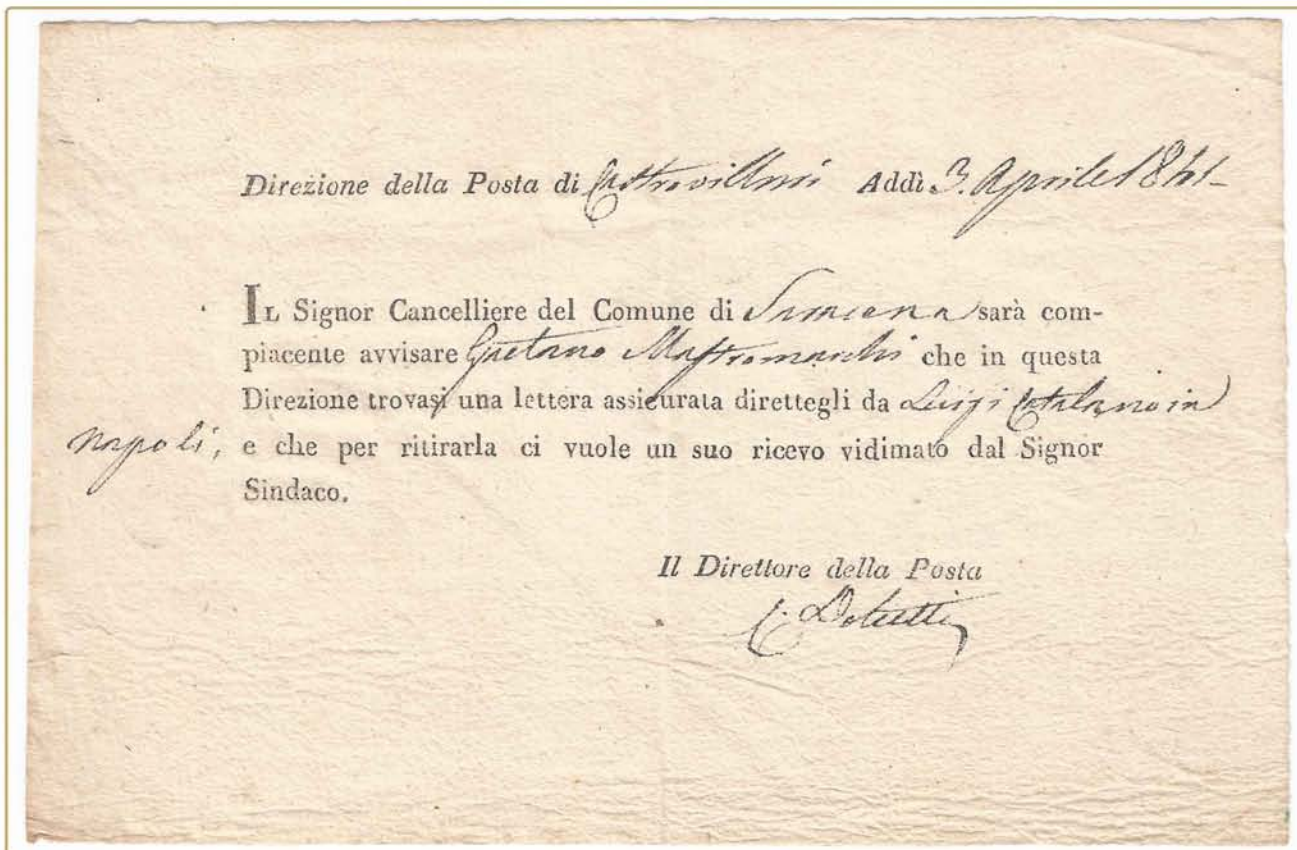 Direzione della Posta di Castrovillari Addì 3. Aprile 1841-
IL Signor Cancelliere del Comune di sarà com-
piacente avvisare Gaetano Mastromarchi che in questa
Direzione trovasi una lettera assicurata direttegli da Luigi Catalano in
Napoli, e che per ritirarla ci vuole un suo ricevo vidimato dal Signor
Sindaco.
Il Direttore della Posta